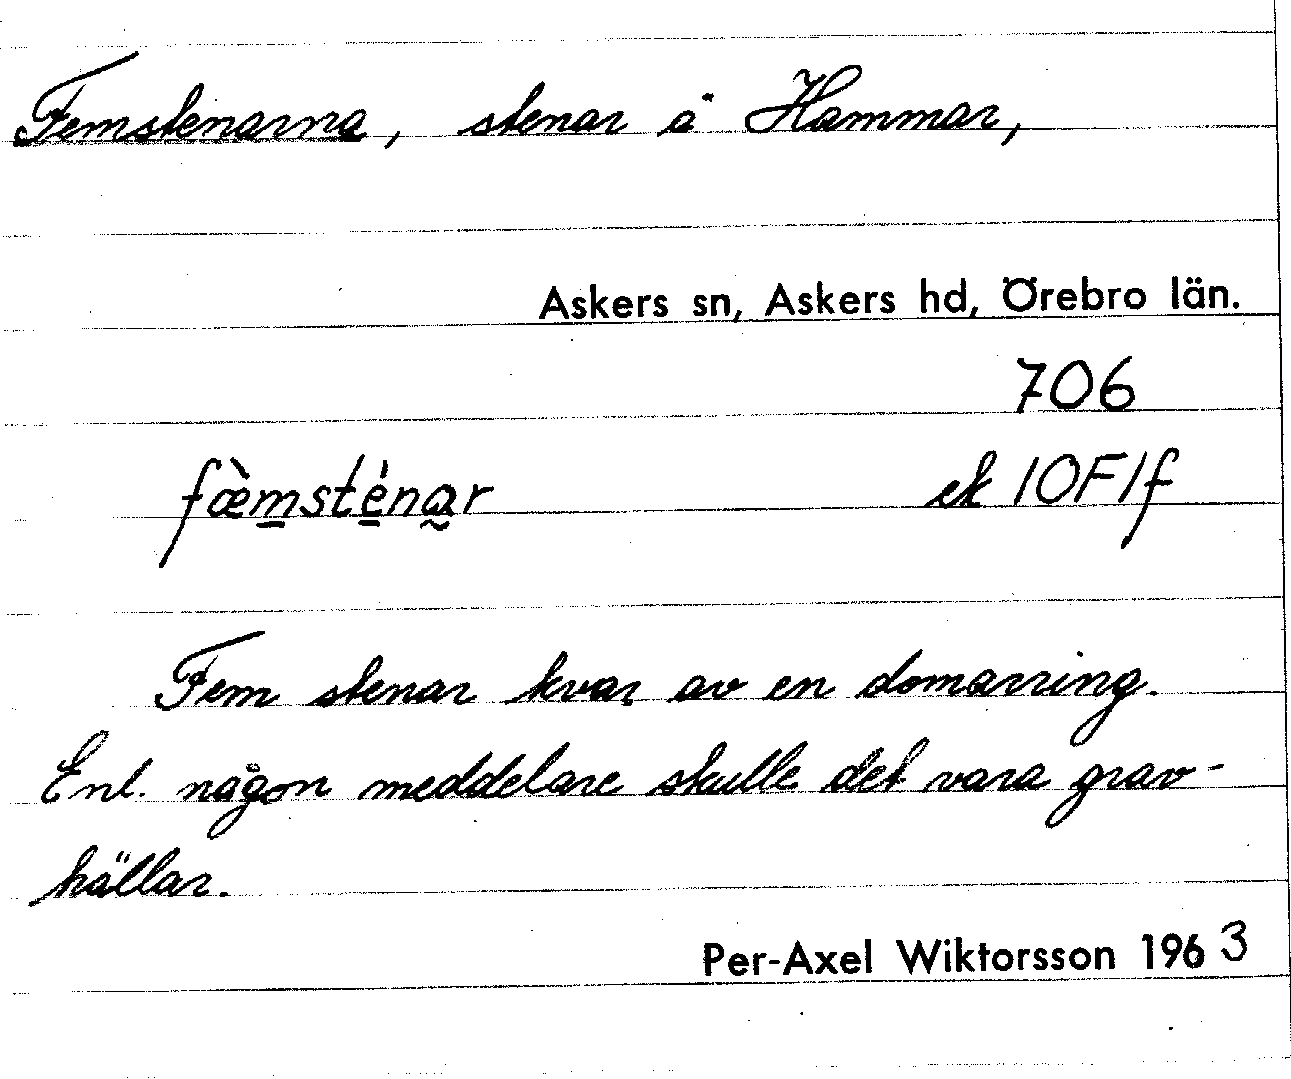 Femstenarna, stenar å Hammar,
Askers sn, Askers hd, Örebro län.
706
fœ̀ms̱té̱na̰r ek 10F1f
Fem stenar kvar av en domarring.
Enl. någon meddelare skulle det vara grav-
hällar.
Per-Axel Wiktorsson 1963